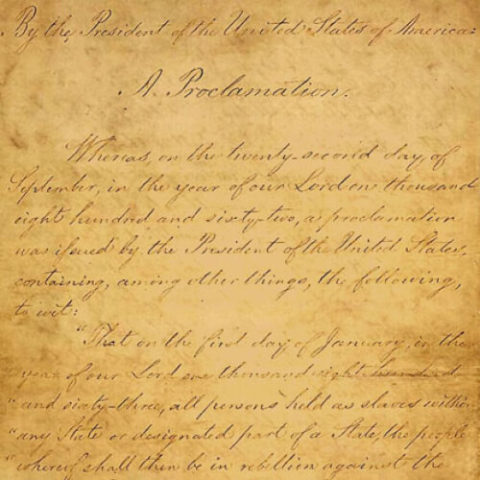 By the President of the United States of America:
A Proclamation.
Whereas on the twenty-second day of
September, in the year of our Lord one thousand
eight hundred and sixty-two, a proclamation
was issued by the President of the United States,
containing, among other things, the following,
to wit:
"That on the first day of January, in the
year of our Lord one thousand eight hundred
"and sixty-three, all persons held as slaves within
"any State or designated part of a State, the people
"whereof shall then be in rebellion against the